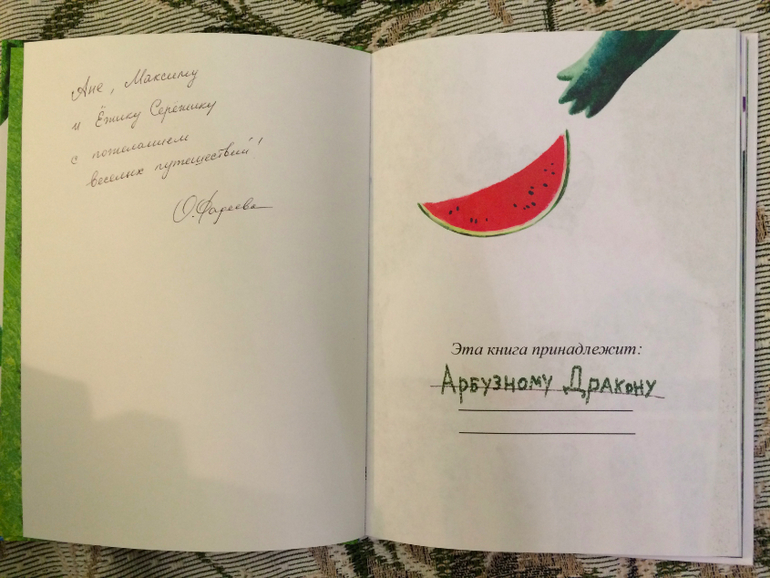 Ане, Максиму
и Ёжику Сережику
с пожеланием
веселых путешествий!
О. Фадеева
Эта книга принадлежит:
Арбузному Дракону